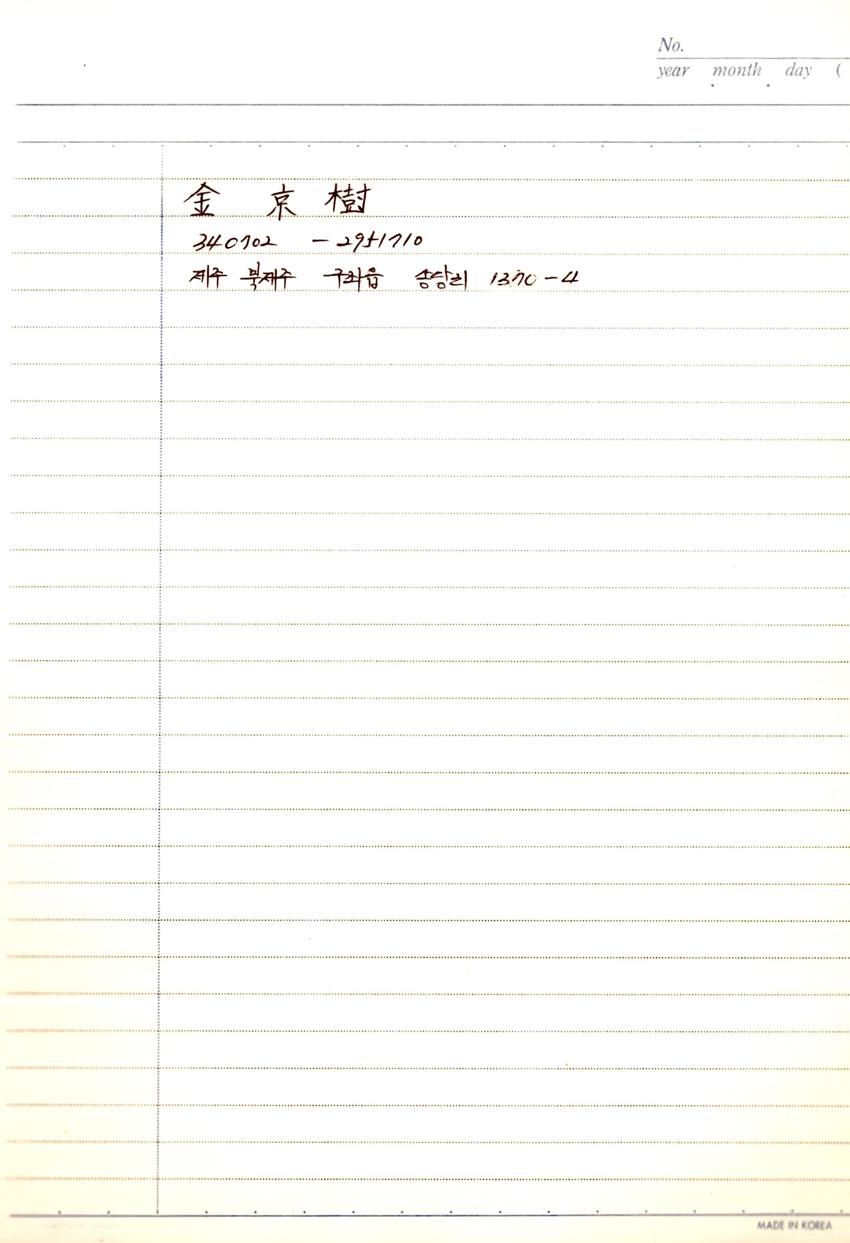 No.
year month day (
金 京 樹
340702 - 2951710
제주 북제주 구좌읍 송당리 1370-4
MADE IN KOREA